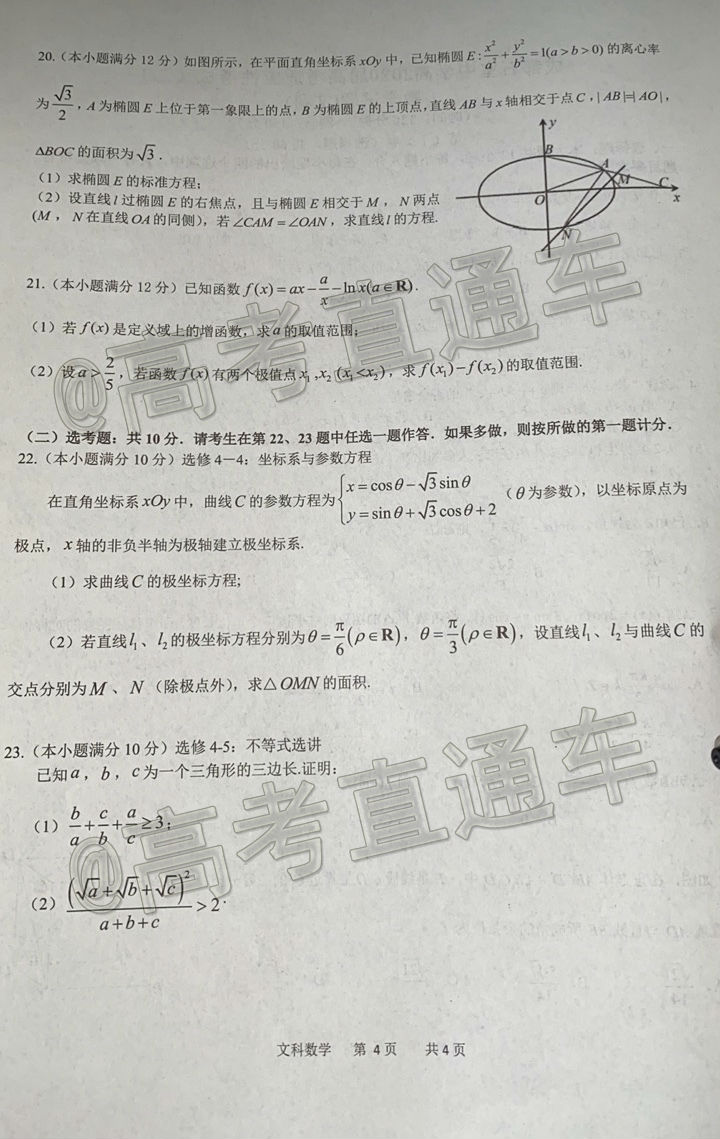 20.（本小题满分 12 分）如图所示，在平面直角坐标系 xOy 中，已知椭圆 E: x²/a² + y²/b² = 1(a>b>0) 的离心率
为 √3/2，A 为椭圆 E 上位于第一象限上的点，B 为椭圆 E 的上顶点，直线 AB 与 x 轴相交于点 C，|AB|=|AO|，
△BOC 的面积为 √3．
（1）求椭圆 E 的标准方程；
（2）设直线 l 过椭圆 E 的右焦点，且与椭圆 E 相交于 M，N 两点
(M，N 在直线 OA 的同侧)，若 ∠CAM = ∠OAN，求直线 l 的方程.
y
B
A
M
C
O
x
N
21.（本小题满分 12 分）已知函数 f(x) = ax − a/x − ln x(a∈R).
（1）若 f(x) 是定义域上的增函数，求 a 的取值范围；
（2）设 a > 2/5，若函数 f(x) 有两个极值点 x₁,x₂ (x₁<x₂)，求 f(x₁)−f(x₂) 的取值范围.
@高考直通车
（二）选考题：共 10 分．请考生在第 22、23 题中任选一题作答．如果多做，则按所做的第一题计分．
22.（本小题满分 10 分）选修 4－4：坐标系与参数方程
在直角坐标系 xOy 中，曲线 C 的参数方程为 { x = cosθ − √3 sinθ
y = sinθ + √3 cosθ + 2 （θ 为参数），以坐标原点为
极点，x 轴的非负半轴为极轴建立极坐标系.
（1）求曲线 C 的极坐标方程;
（2）若直线 l₁、l₂ 的极坐标方程分别为 θ = π/6 (ρ∈R)，θ = π/3 (ρ∈R)，设直线 l₁、l₂ 与曲线 C 的
交点分别为 M、N（除极点外），求△OMN 的面积.
23.（本小题满分 10 分）选修 4-5：不等式选讲
已知 a，b，c 为一个三角形的三边长.证明：
（1）b/a + c/b + a/c ≥ 3；
（2）(√a + √b + √c)²/(a+b+c) > 2．
@高考直通车
文科数学 第 4 页 共 4 页